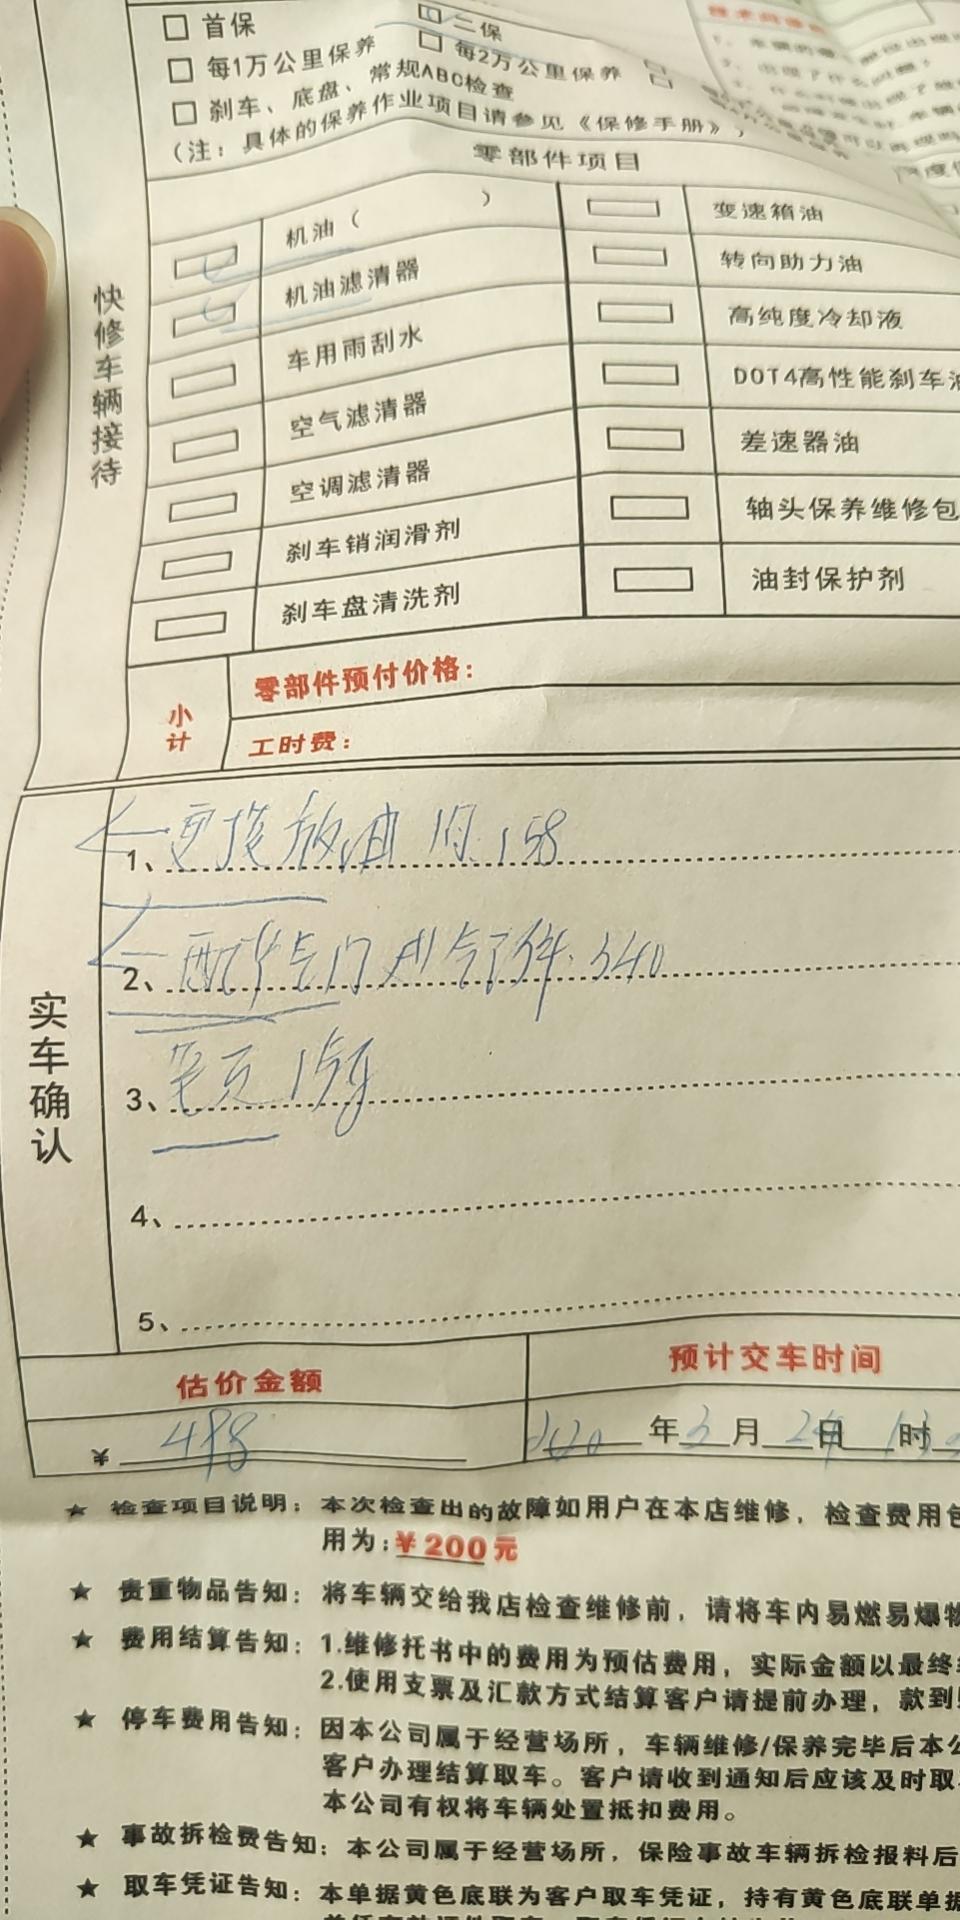 □ 首保
□ 二保
□ 每1万公里保养
□ 每2万公里保养
□ 刹车、底盘、常规ABC检查
(注：具体的保养作业项目请参见《保修手册》)
零部件项目
快修车辆接待
机油（ ）
变速箱油
机油滤清器
转向助力油
车用雨刮水
高纯度冷却液
空气滤清器
DOT4高性能刹车油
空调滤清器
差速器油
刹车销润滑剂
轴头保养维修包
刹车盘清洗剂
油封保护剂
小计
零部件预付价格：
工时费：
实车确认
1、更换放油 158
2、340
3、
4、
5、
估价金额
预计交车时间
¥ 498
年3月24日 13时
★ 检查项目说明：本次检查出的故障如用户在本店维修，检查费用包
用为：¥200元
★ 贵重物品告知：将车辆交给我店检查维修前，请将车内易燃易爆物
★ 费用结算告知：1.维修托书中的费用为预估费用，实际金额以最终
2.使用支票及汇款方式结算客户请提前办理，款到
★ 停车费用告知：因本公司属于经营场所，车辆维修/保养完毕后本公
客户办理结算取车。客户请收到通知后应该及时取
本公司有权将车辆处置抵扣费用。
★ 事故拆检费告知：本公司属于经营场所，保险事故车辆拆检报料后
★ 取车凭证告知：本单据黄色底联为客户取车凭证，持有黄色底联单据